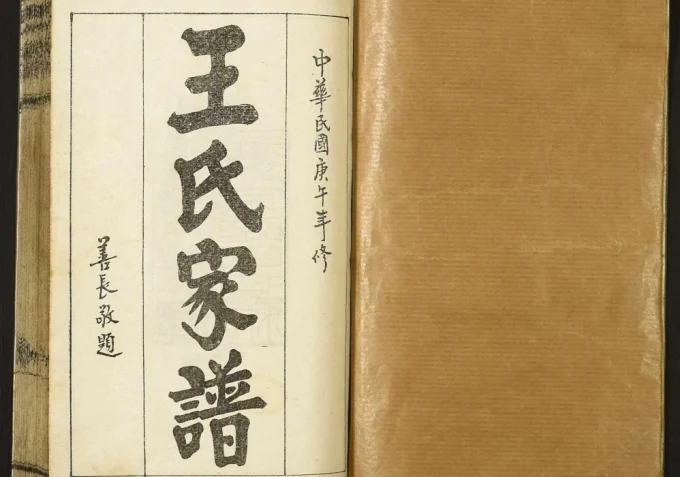 中華民國庚午年修
王氏家譜
善長敬題